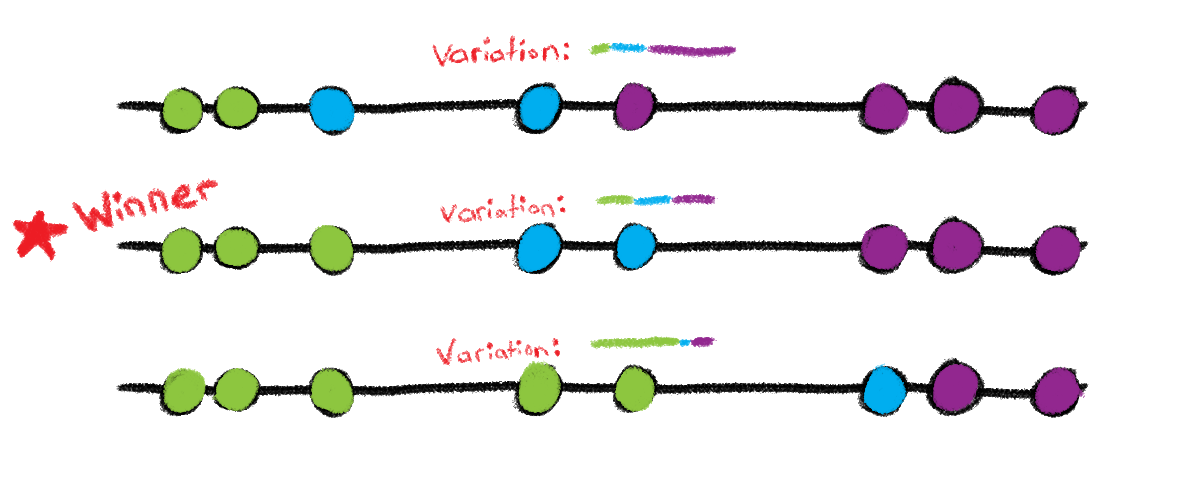 Variation:
Winner
Variation:
Variation: